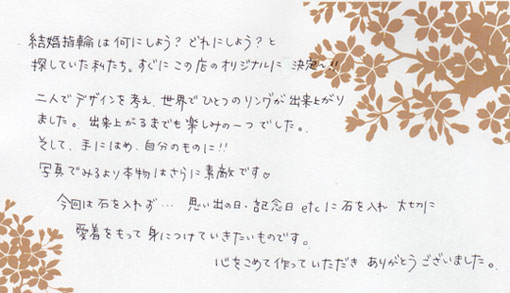 結婚指輪は何にしよう? どれにしよう? と
探していた私たち。すぐにこの店のオリジナルに 決定〜!!
二人でデザインを考え、世界でひとつのリングが出来上がり
ました。出来上がるまでも楽しみの一つでした。
そして、手にはめ、自分のものに!!
写真でみるより本物はさらに素敵です♡
今回は石を入れず… 思い出の日・記念日 etcに石を入れ 大切に
愛着をもって身につけていきたいものです。
心をこめて作っていただき ありがとうございました。